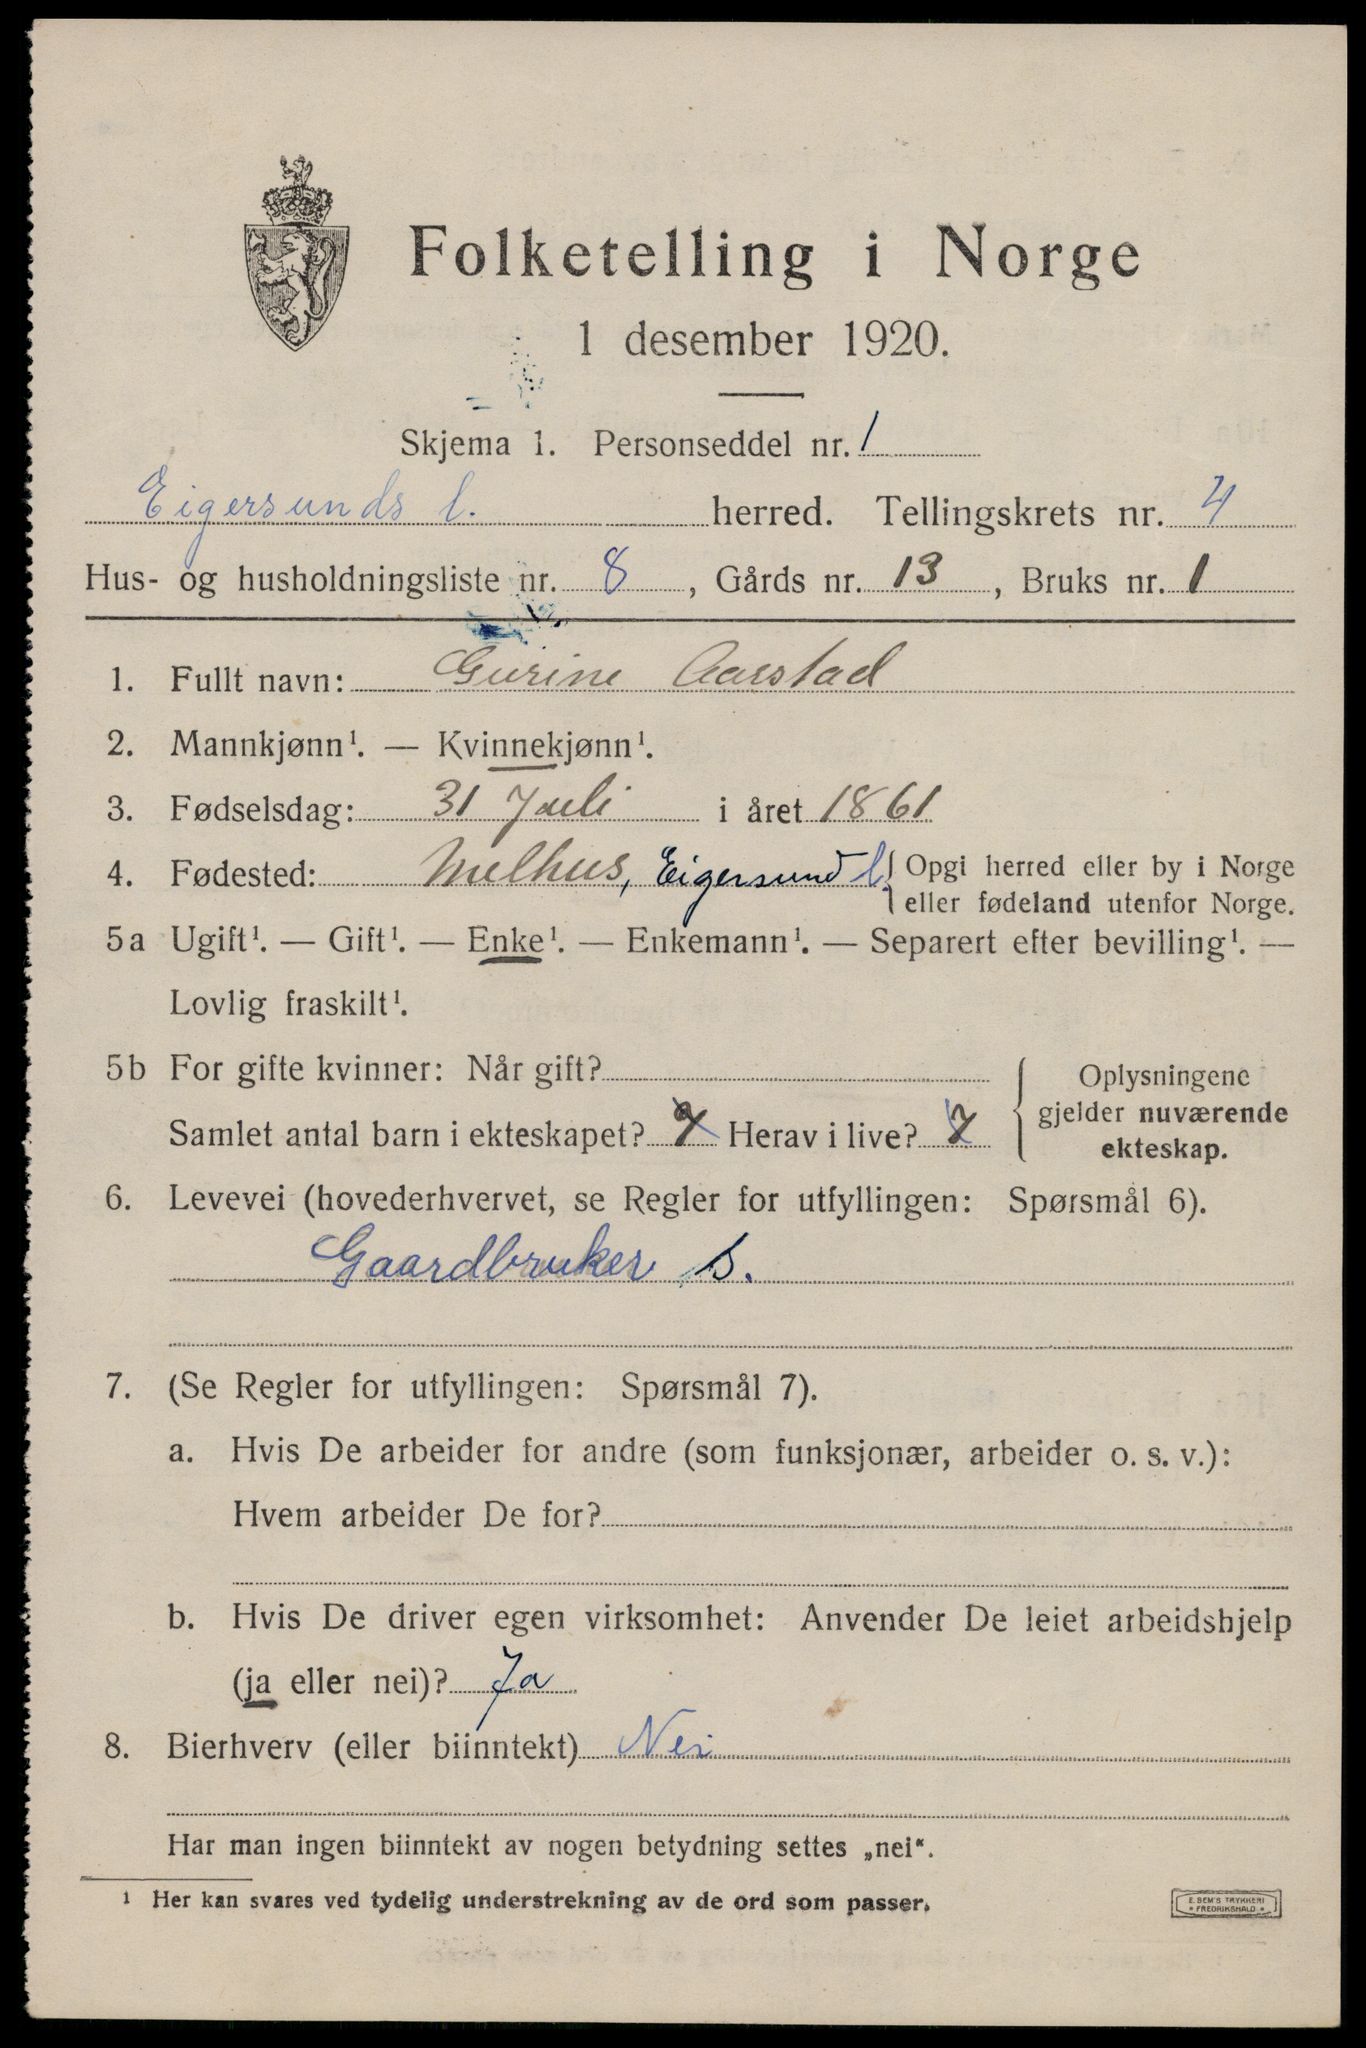 Folketelling i Norge
1 desember 1920.
Skjema 1. Personseddel nr. 1
Eigersunds l. herred. Tellingskrets nr. 4
Hus- og husholdningsliste nr. 8, Gårds nr. 13, Bruks nr. 1
1. Fullt navn: Gurine Aarstad
2. Mannkjønn¹. — Kvinnekjønn¹.
3. Fødselsdag: 31 Juli i året 1861
4. Fødested: Melhus, Eigersund l. { Opgi herred eller by i Norge
eller fødeland utenfor Norge.
5a Ugift¹. — Gift¹. — Enke¹. — Enkemann¹. — Separert efter bevilling¹. —
Lovlig fraskilt¹.
5b For gifte kvinner: Når gift?
Samlet antal barn i ekteskapet? 7 Herav i live? 7
Oplysningene
gjelder nuværende
ekteskap.
6. Levevei (hovederhvervet, se Regler for utfyllingen: Spørsmål 6).
Gaardbruker S.
7. (Se Regler for utfyllingen: Spørsmål 7).
a. Hvis De arbeider for andre (som funksjonær, arbeider o. s. v.):
Hvem arbeider De for?
b. Hvis De driver egen virksomhet: Anvender De leiet arbeidshjelp
(ja eller nei)? Ja
8. Bierhverv (eller biinntekt) Nei
Har man ingen biinntekt av nogen betydning settes „nei“.
1 Her kan svares ved tydelig understrekning av de ord som passer.
E. SEM'S TRYKKERI
* FREDRIKSHALD *